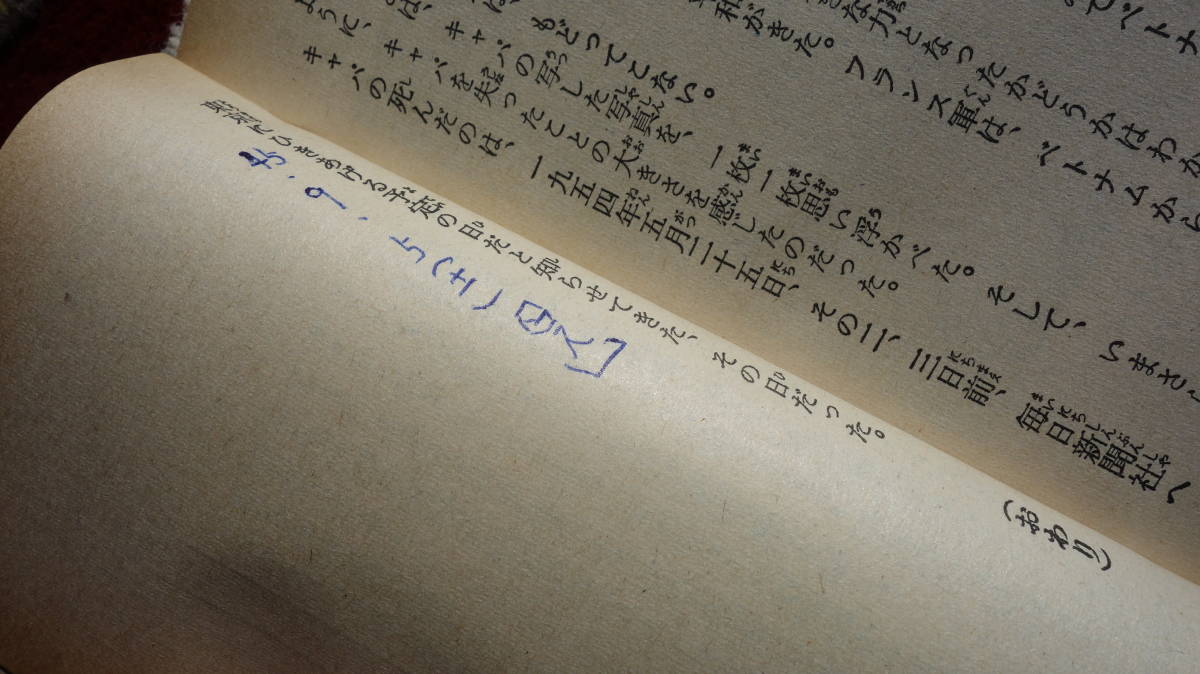 でベトナ
な力となったかどうかはわか
和がきた。フランス軍は、ベトナムから
もどってこない。
は、キャパの写した写真を、一枚一枚思い浮かべた。そして、いまさ
ように、キャパを失ったことの大きさを感じたのだった。
キャパの死んだのは、一九五四年五月二十五日、その二、三日前、毎日新聞社へ
にひきあげる予定の日だと知らせてきた、その日だった。
(おわり)
9、5(土)